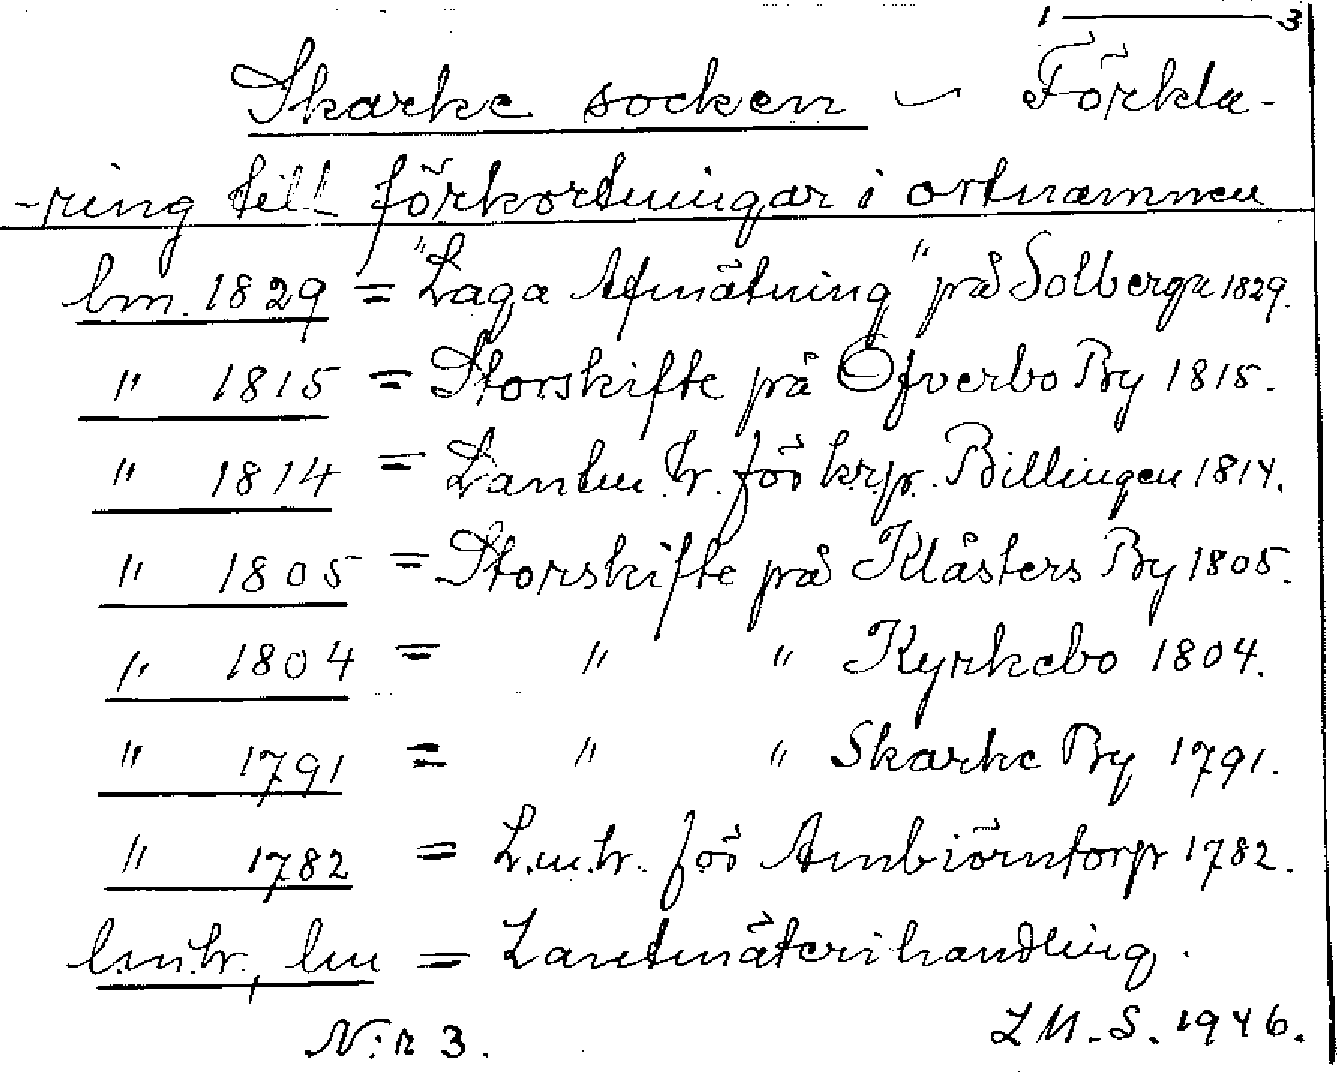 1 — 3
Skarke socken - Förkla-
-ring till förkortningar i ortnamnen
lm. 1829 = "Laga Afmätning" på Solberga 1829.
" 1815 = Storskifte på Öfverbo By 1815.
" 1814 = Lantm. h. för krp. Billingen 1814.
" 1805 = Storskifte på Klåsters By 1805.
" 1804 = " " Kyrkebo 1804.
" 1791 = " " Skarke By 1791.
" 1782 = L.m.h. för Ambiörntorp 1782.
l.m.h., lm = Lantmäterihandling.
N:r 3.
L M. S. 1946.